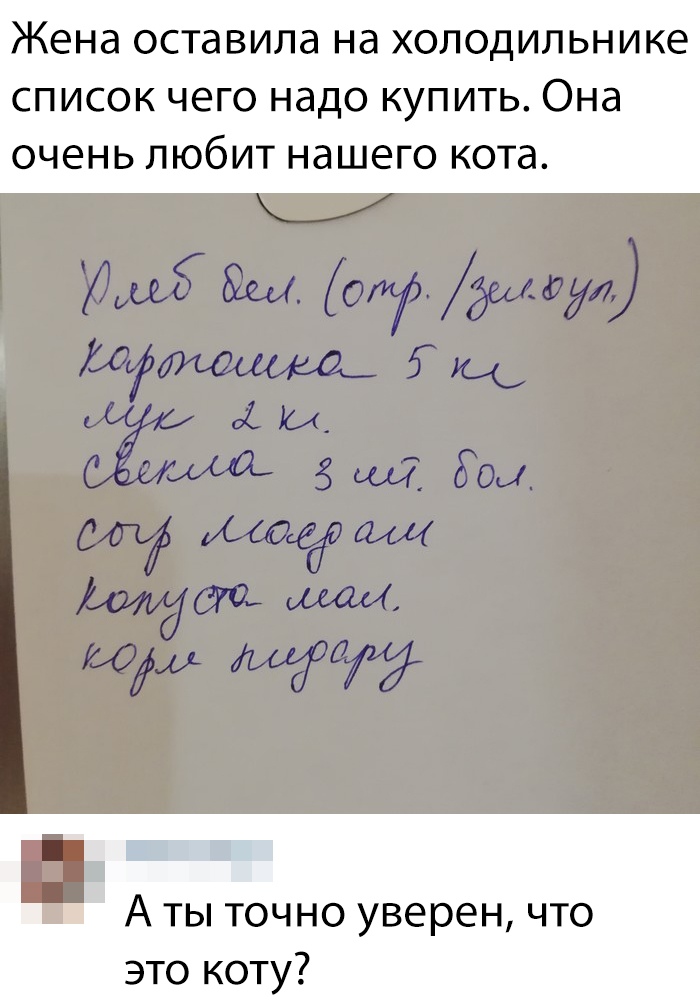 Жена оставила на холодильнике
список чего надо купить. Она
очень любит нашего кота.
Хлеб бел. (отр./зел.буп.)
картошка 5 кг
лук 2 кг.
свекла 3 шт. бол.
сыр Маасдам
капуста мал.
корм пидару
А ты точно уверен, что
это коту?